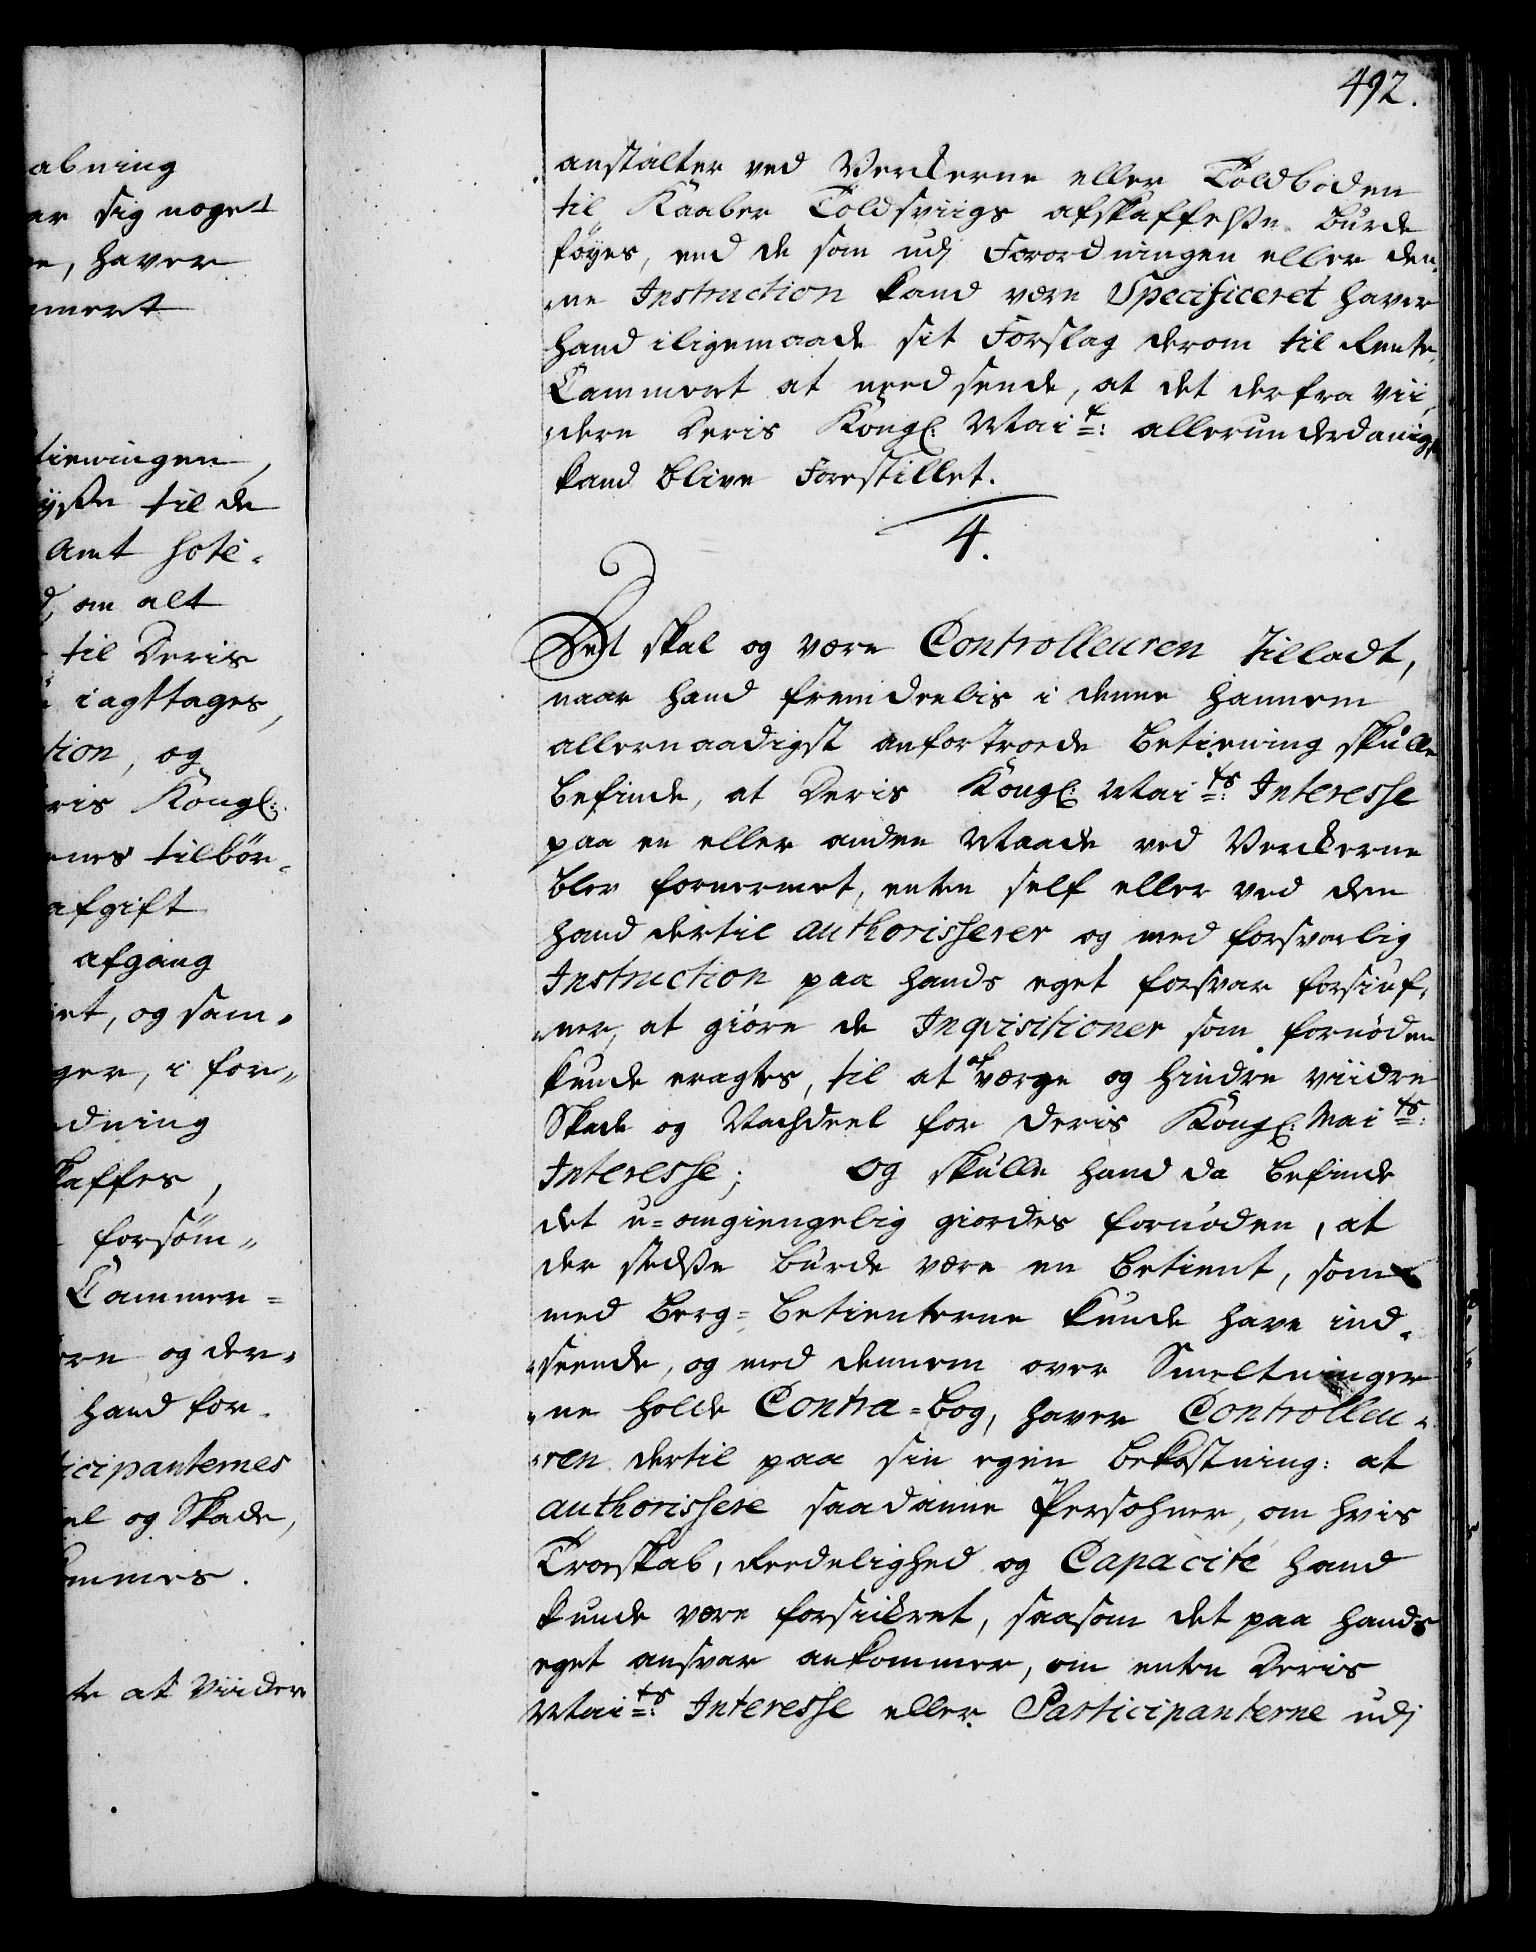 492.
abning
ar sig noget
e, haver
mert
tieningen,
ysse til de
Amt hote-
d, om alt
til Deris
iagttages,
tion, og
ris Kongl:
enes tilbör-
afgift
afgang
et, og sam-
ger, i for-
dning
kaffes,
forsöm-
Cammer=
ere og der-
hand for-
icipanternes
el og Skade,
emmes.
te at viider
anstalter ved Verckerne eller Toldboden
til Kaaber Toldsviigs afskaffelse burde
föyes, end de som udj Forordningen eller den-
-ne Instruction kand være Specificeret haver
hand iligemaade sit Forslag derom til Rente-
Cammeret at needsende, at det derfra vii-
-dere Deris Kongl: Mait: allerunderdanigst
kand blive Forestillet.
4.
Det skal og være Controlleuren tilladt,
naar hand fremdeelis i denne hannem
allernaadigst anfortroede betiening skulle
befinde, at Deris Kongl: Maits: Interesse
paa en eller anden Maade ved Verckerne
blev fornermet, enten self eller ved dem
hand dertil authorisserer og med forsvarlig
Instruction paa hands eget forsvar forsiuf-
-ner, at giöre de Inqvisitioner som fornöden
kunde eragtes, til at afværge og hindre viidre
Skade og Nachdeel for Deris Kongl: Maits:
Interesse; og skulle hand da befinde
det u=omgiengelig giordes fornöden, at
der stedsse burde være en betient, som
med Berg=betienterne kunde have ind-
-seende, og med dennem over Smeltninger-
-ne holde Contra=bog, haver Controlleu-
-ren dertil paa sin egen bekostning: at
authorissere saadanne Persohner, om hvis
Troeskab, Reedelighed og Capacité hand
kunde være forsiicket, saasom det paa hands
eget ansvar ankommer, om enten Deris
Maits: Interesse eller Participanterne udj